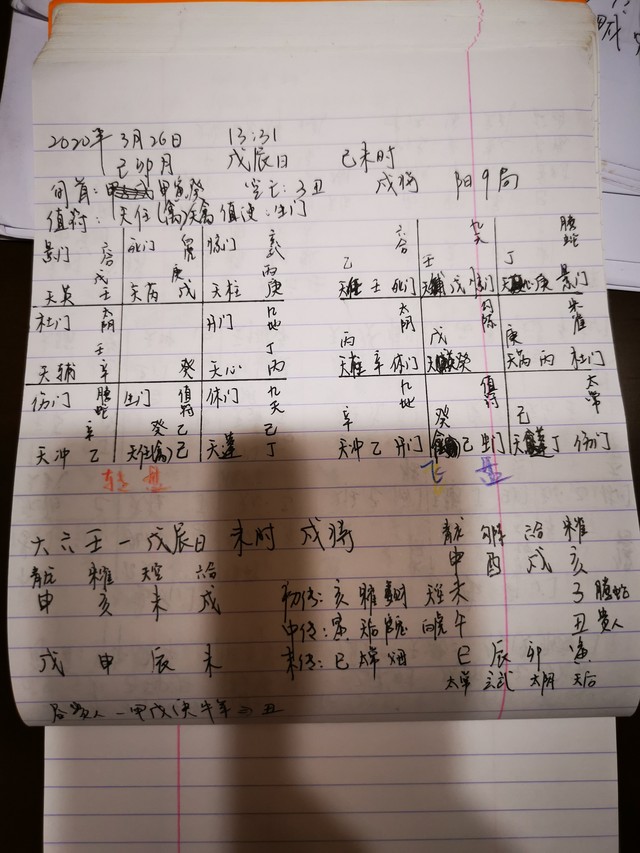 2020年 3月26日 13:31
己卯月 戊辰日 己未时
旬首:甲寅癸 空亡:子丑 戌将 阳9局
值符:天任(禽)天禽 值使:生门
景门 六合 死门 白虎 惊门 玄武 六合 九天 螣蛇
戊 庚 丙 乙 壬 丁
天英 壬 天芮 戊 天柱 庚 壬 死门 戊 惊门 天心 庚 景门
杜门 太阴 开门 九地 太阴 勾陈 朱雀
壬 丁 丙 戊 庚
天辅 辛 癸 天心 丙 辛 休门 癸 天芮 丙 杜门
伤门 螣蛇 生门 值符 休门 九天 九地 值符 太常
辛 癸 乙 己 辛 癸 己
天冲 乙 天任(禽) 己 天蓬 丁 天冲 乙 开门 己 生门 天蓬 丁 伤门
转盘 飞盘
大六壬-戊辰日 未时 戌将
青龙 勾陈 六合 朱雀
申 酉 戌 亥
青龙 朱雀 天空 六合
申 亥 未 戌 初传:亥 朱雀 妻财 天空 未 子 螣蛇
中传:寅 天后 官鬼 白虎 午 丑 贵人
戊 申 辰 未 末传:巳 太常 巳 辰 卯 寅
太常 玄武 太阴 天后
昼贵人-甲戊庚牛羊→丑